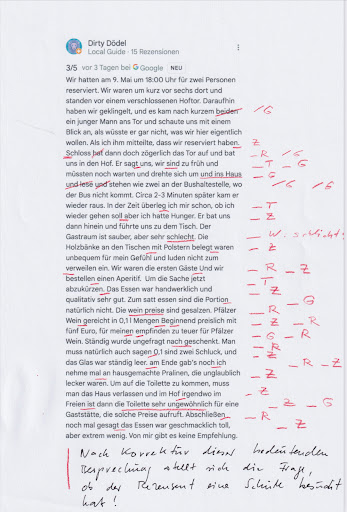 Dirty Dödel
Local Guide · 15 Rezensionen
3/5 vor 3 Tagen bei Google NEU
Wir hatten am 9. Mai um 18:00 Uhr für zwei Personen
reserviert. Wir waren um kurz vor sechs dort und
standen vor einem verschlossenen Hoftor. Daraufhin
haben wir geklingelt, und es kam nach kurzem beiden /G
ein junger Mann ans Tor und schaute uns mit einem
Blick an, als wüsste er gar nicht, was wir hier eigentlich
wollen. Als ich ihm mitteilte, dass wir reserviert haben. Z
Schloss hat dann doch zögerlich das Tor auf und bat R /G
uns in den Hof. Er sagt uns, wir sind zu früh und T G
müssten noch warten und drehte sich um und ins Haus G
und lese und stehen wie zwei an der Bushaltestelle, wo /G /G
der Bus nicht kommt. Circa 2-3 Minuten später kam er
wieder raus. In der Zeit überleg ich mir schon, ob ich T
wieder gehen soll aber ich hatte Hunger. Er bat uns Z
dann hinein und führte uns zu dem Tisch. Der
Gastraum ist sauber, aber sehr schlecht. Die W. schlicht!
Holzbänke an den Tischen mit Polstern belegt waren Z
unbequem für mein Gefühl und luden nicht zum
verweilen ein. Wir waren die ersten Gäste Und wir R Z
bestellen einen Aperitif. Um die Sache jetzt T
abzukürzen. Das Essen war handwerklich und Z
qualitativ sehr gut. Zum satt essen sind die Portion G
natürlich nicht. Die wein preise sind gesalzen. Pfälzer R
Wein gereicht in 0,1 l Mengen Beginnend preislich mit Z R
fünf Euro, für meinen empfinden zu teuer für Pfälzer G R
Wein. Ständig wurde ungefragt nach geschenkt. Man R
muss natürlich auch sagen 0,1 sind zwei Schluck, und Z
das Glas war ständig leer. am Ende gab's noch ich R Z
nehme mal an hausgemachte Pralinen, die unglaublich Z
lecker waren. Um auf die Toilette zu kommen, muss
man das Haus verlassen und im Hof irgendwo im Z
Freien ist dann die Toilette sehr ungewöhnlich für eine Z G
Gaststätte, die solche Preise aufruft. Abschließen R
noch mal gesagt das Essen war geschmacklich toll, Z
aber extrem wenig. Von mir gibt es keine Empfehlung.
Nach Korrektur dieser bedeutenden
Besprechung stellt sich die Frage,
ob der Rezensent eine Schule besucht
hat!